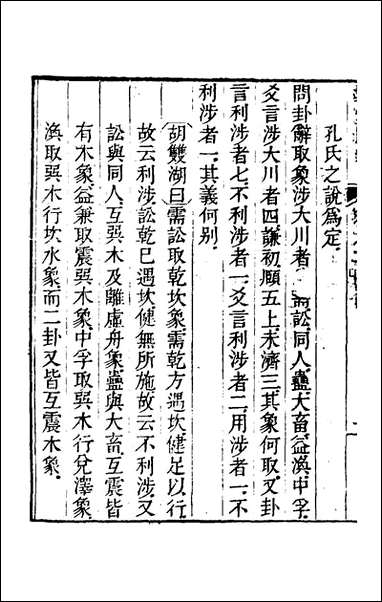 孔氏之說爲定.
問卦辭取象涉大川者 需訟.同人.蠱.大畜.益.渙.中孚.
爻言涉大川者四.謙初.頤五上.未濟三.其象何取.又卦
言利涉者七.不利涉者一.爻言利涉者二.用涉者一.不
利涉者一.其義何别.
胡雙湖曰需訟取乾坎象.需乾方遇坎.健足以行.
故云利涉.訟乾已遇坎.健無所施.故云不利涉.又
訟與同人.互巽木及離虛舟象.蠱與大畜.互震皆
有木象.益兼取震巽木象.中孚取巽木行兌澤象.
渙取巽木行坎水象.而二卦又皆互震木象.